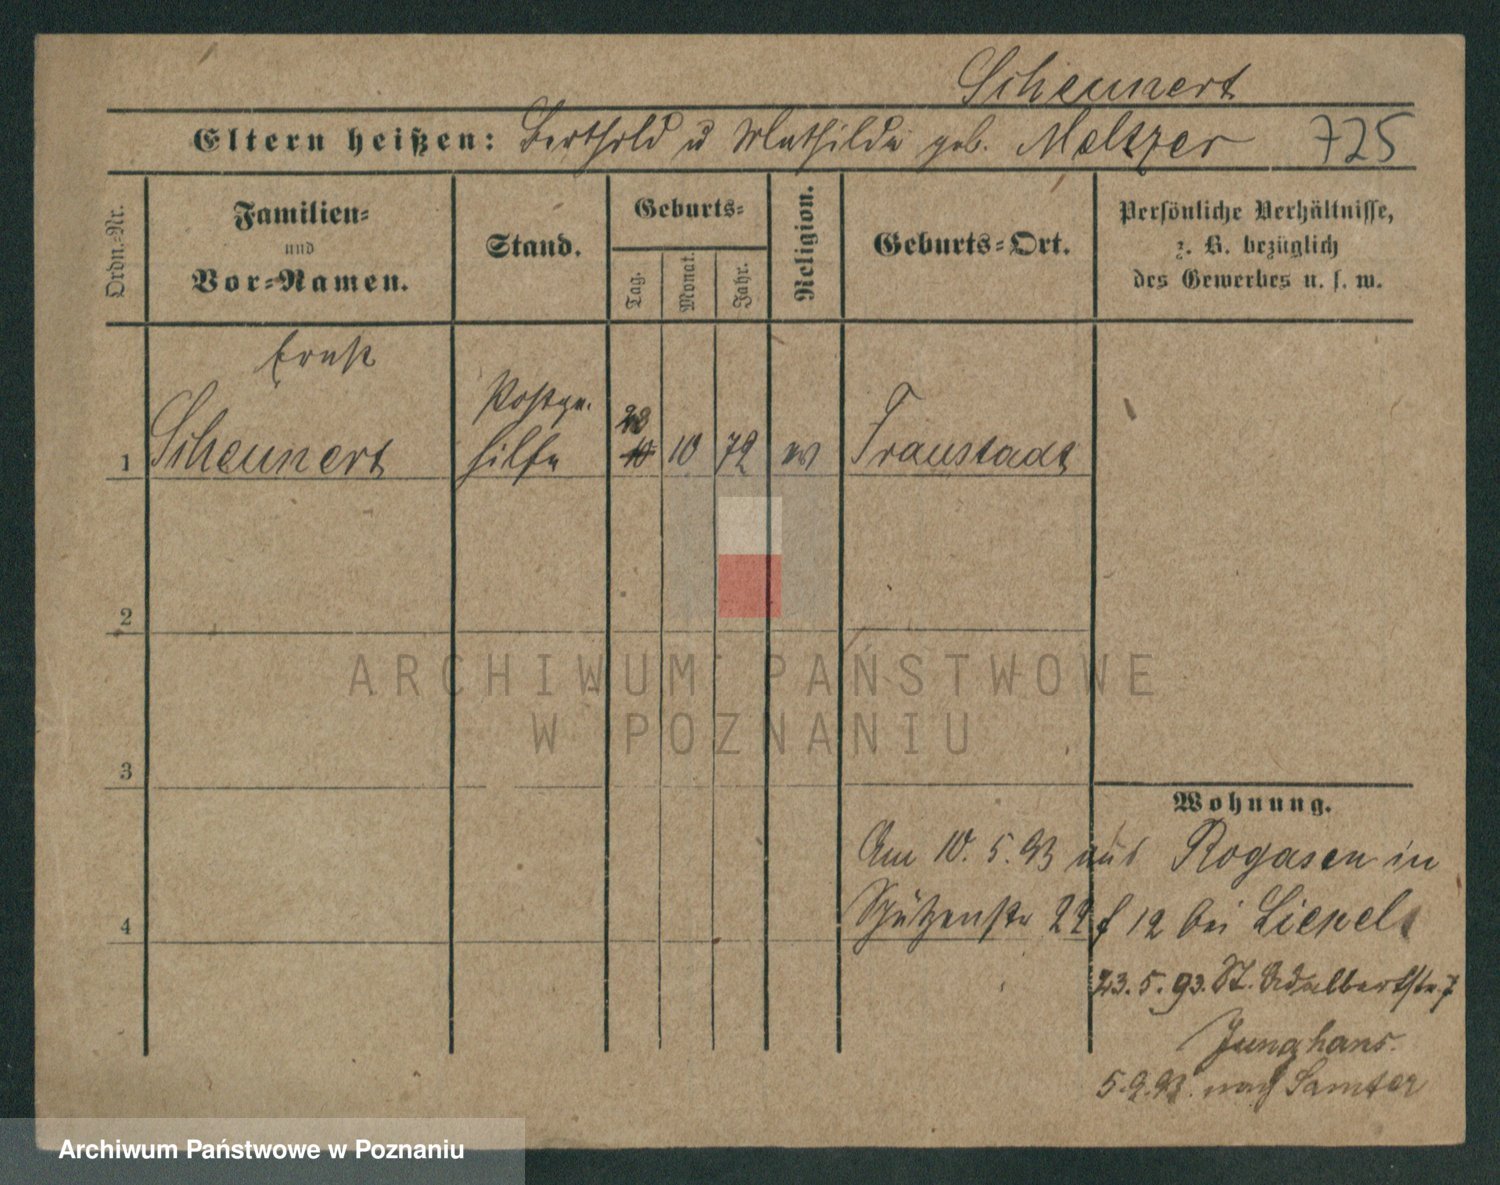 Scheunert
Eltern heißen: Berthold u Mathilde geb. Meltzer 725
Ordn.=Nr.
Familien=
und
Vor=Namen.
Stand.
Geburts=
Tag.
Monat.
Jahr.
Religion.
Geburts=Ort.
Persönliche Verhältnisse,
z. B. bezüglich
des Gewerbes u. s. w.
Ernst
1 Scheunert
Postge-
hilfe
28
10 10 72 ev Fraustadt
2
3
4
ARCHIWUM PAŃSTWOWE
W POZNANIU
Wohnung.
Am 10. 5. 93 aus Rogasen in
Schützenstr 22 f 12 bei Liepelt
23. 5. 93. St. Adalbertstr. 7
Junghans.
5. 9. 93. nach Samter
Archiwum Państwowe w Poznaniu